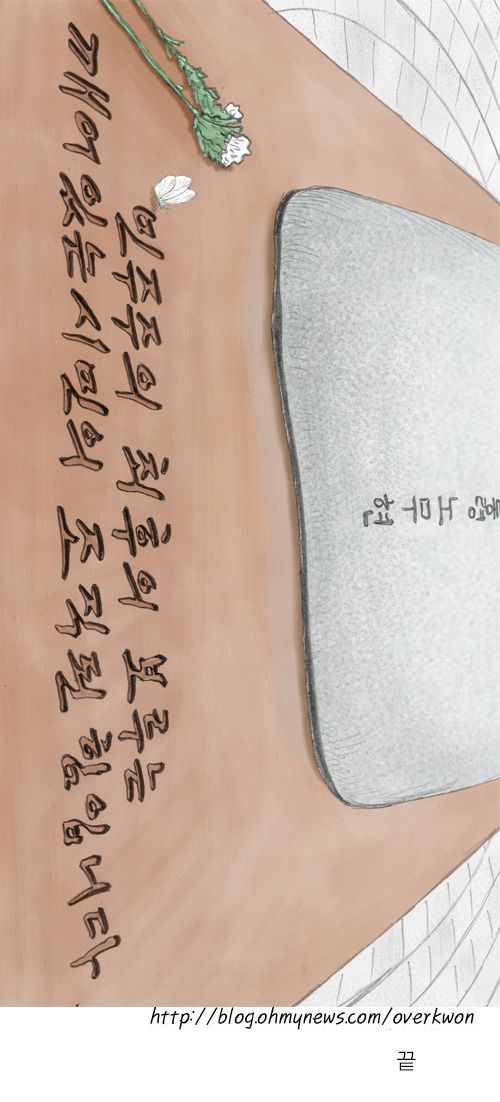 노무현
민주주의 최후의 보루는
깨어있는 시민의 조직된 힘입니다
http://blog.ohmynews.com/overkwon
끝